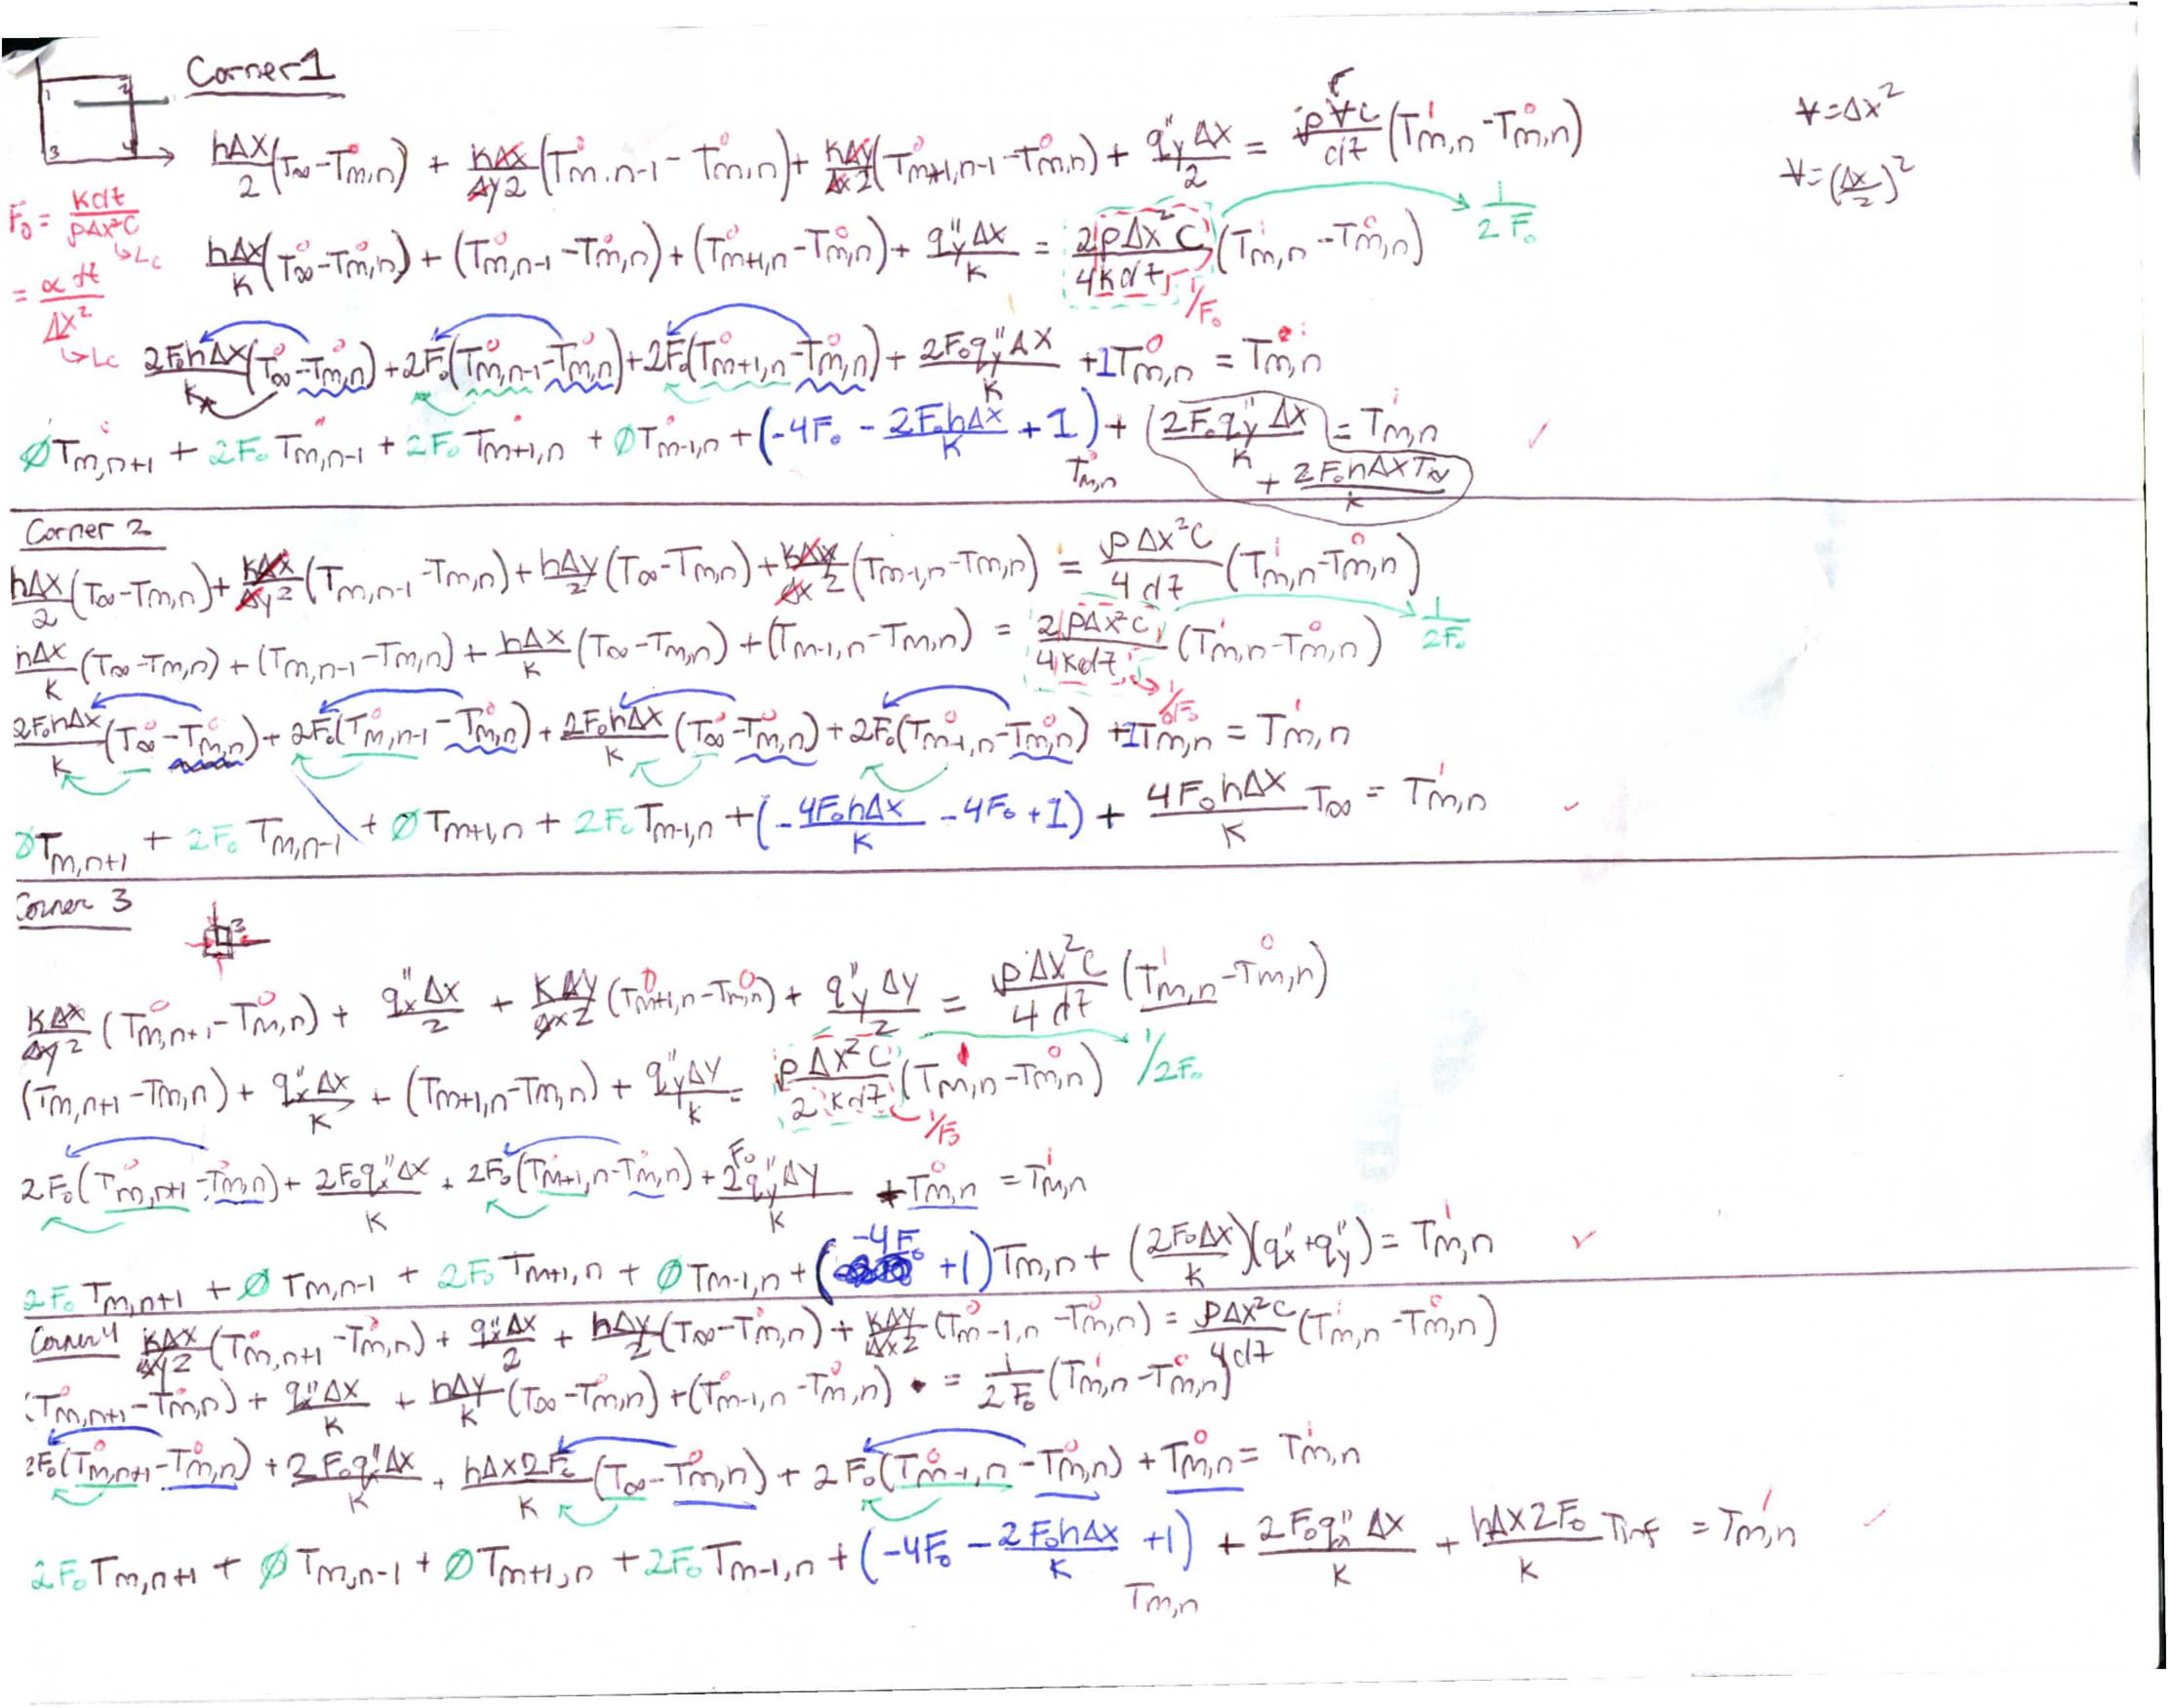 Corner 1
1 2
3 4
hΔx/2 (T∞ - T⁰m,n) + kΔx/Δy2 (T⁰m,n-1 - T⁰m,n) + kΔy/Δx2 (T⁰m+1,n-1 - T⁰m,n) + q"y Δx/2 = ρ∀c/dt (T¹m,n - T⁰m,n)
∀ = Δx²
∀ = (Δx/2)²
F₀ = kdt/ρΔx²C
↳ Lc
= α dt/Δx²
↳ Lc
hΔx/k (T⁰∞ - T⁰m,n) + (T⁰m,n-1 - T⁰m,n) + (T⁰m+1,n - T⁰m,n) + q"y Δx/k = 2ρΔx²C/4kdt (T¹m,n - T⁰m,n) 1/2F₀
1/F₀
2F₀hΔx/k (T⁰∞ - T⁰m,n) + 2F₀(T⁰m,n-1 - T⁰m,n) + 2F₀(T⁰m+1,n - T⁰m,n) + 2F₀q"y Δx/k + 1T⁰m,n = T¹m,n
∅Tm,n+1 + 2F₀ Tm,n-1 + 2F₀ Tm+1,n + ∅Tm-1,n + (-4F₀ - 2F₀hΔx/k + 1) Tm,n + (2F₀q"y Δx/k + 2F₀hΔxT∞/k = T¹m,n ✓
Corner 2
hΔx/2 (T∞ - Tm,n) + kΔx/Δy2 (Tm,n-1 - Tm,n) + hΔy/2 (T∞ - Tm,n) + kΔx/Δx2 (Tm-1,n - Tm,n) = ρΔx²C/4dt (T¹m,n - T⁰m,n)
hΔx/k (T∞ - Tm,n) + (Tm,n-1 - Tm,n) + hΔx/k (T∞ - Tm,n) + (Tm-1,n - Tm,n) = 2ρΔx²C/4kdt (T¹m,n - T⁰m,n) 1/2F₀
1/F₀
2F₀hΔx/k (T⁰∞ - T⁰m,n) + 2F₀(T⁰m,n-1 - T⁰m,n) + 2F₀hΔx/k (T⁰∞ - T⁰m,n) + 2F₀(T⁰m-1,n - T⁰m,n) + 1T⁰m,n = T¹m,n
∅Tm,n+1 + 2F₀ Tm,n-1 + ∅ Tm+1,n + 2F₀ Tm-1,n + (-4F₀hΔx/k - 4F₀ + 1) + 4F₀hΔx/k T∞ = T¹m,n ✓
Corner 3
3
kΔx/Δy2 (T⁰m,n+1 - T⁰m,n) + q"x Δx/2 + kΔy/Δx2 (T⁰m+1,n - T⁰m,n) + q"y Δy/2 = ρΔx²C/4dt (T¹m,n - T⁰m,n)
(Tm,n+1 - Tm,n) + q"x Δx/k + (Tm+1,n - Tm,n) + q"y Δy/k = ρΔx²C/2kdt (T¹m,n - T⁰m,n) 1/2F₀
1/F₀
2F₀(T⁰m,n+1 - T⁰m,n) + 2F₀q"x Δx/k + 2F₀(T⁰m+1,n - T⁰m,n) + 2F₀q"y Δy/k + T⁰m,n = T¹m,n
2F₀ Tm,n+1 + ∅ Tm,n-1 + 2F₀ Tm+1,n + ∅Tm-1,n + (-4F₀ + 1)Tm,n + (2F₀Δx/k)(q"x + q"y) = T¹m,n ✓
Corner 4 kΔx/Δy2 (T⁰m,n+1 - T⁰m,n) + q"x Δx/2 + hΔy/2 (T∞ - T⁰m,n) + kΔy/Δx2 (T⁰m-1,n - T⁰m,n) = ρΔx²C/4dt (T¹m,n - T⁰m,n)
(T⁰m,n+1 - T⁰m,n) + q"x Δx/k + hΔy/k (T∞ - T⁰m,n) + (T⁰m-1,n - T⁰m,n) = 1/2F₀ (T¹m,n - T⁰m,n)
2F₀(T⁰m,n+1 - T⁰m,n) + 2F₀q"x Δx/k + hΔx2F₀/k (T∞ - T⁰m,n) + 2F₀(T⁰m-1,n - T⁰m,n) + T⁰m,n = T¹m,n
2F₀ Tm,n+1 + ∅ Tm,n-1 + ∅ Tm+1,n + 2F₀ Tm-1,n + (-4F₀ - 2F₀hΔx/k + 1) Tm,n + 2F₀q"x Δx/k + hΔx2F₀/k Tinf = T¹m,n ✓